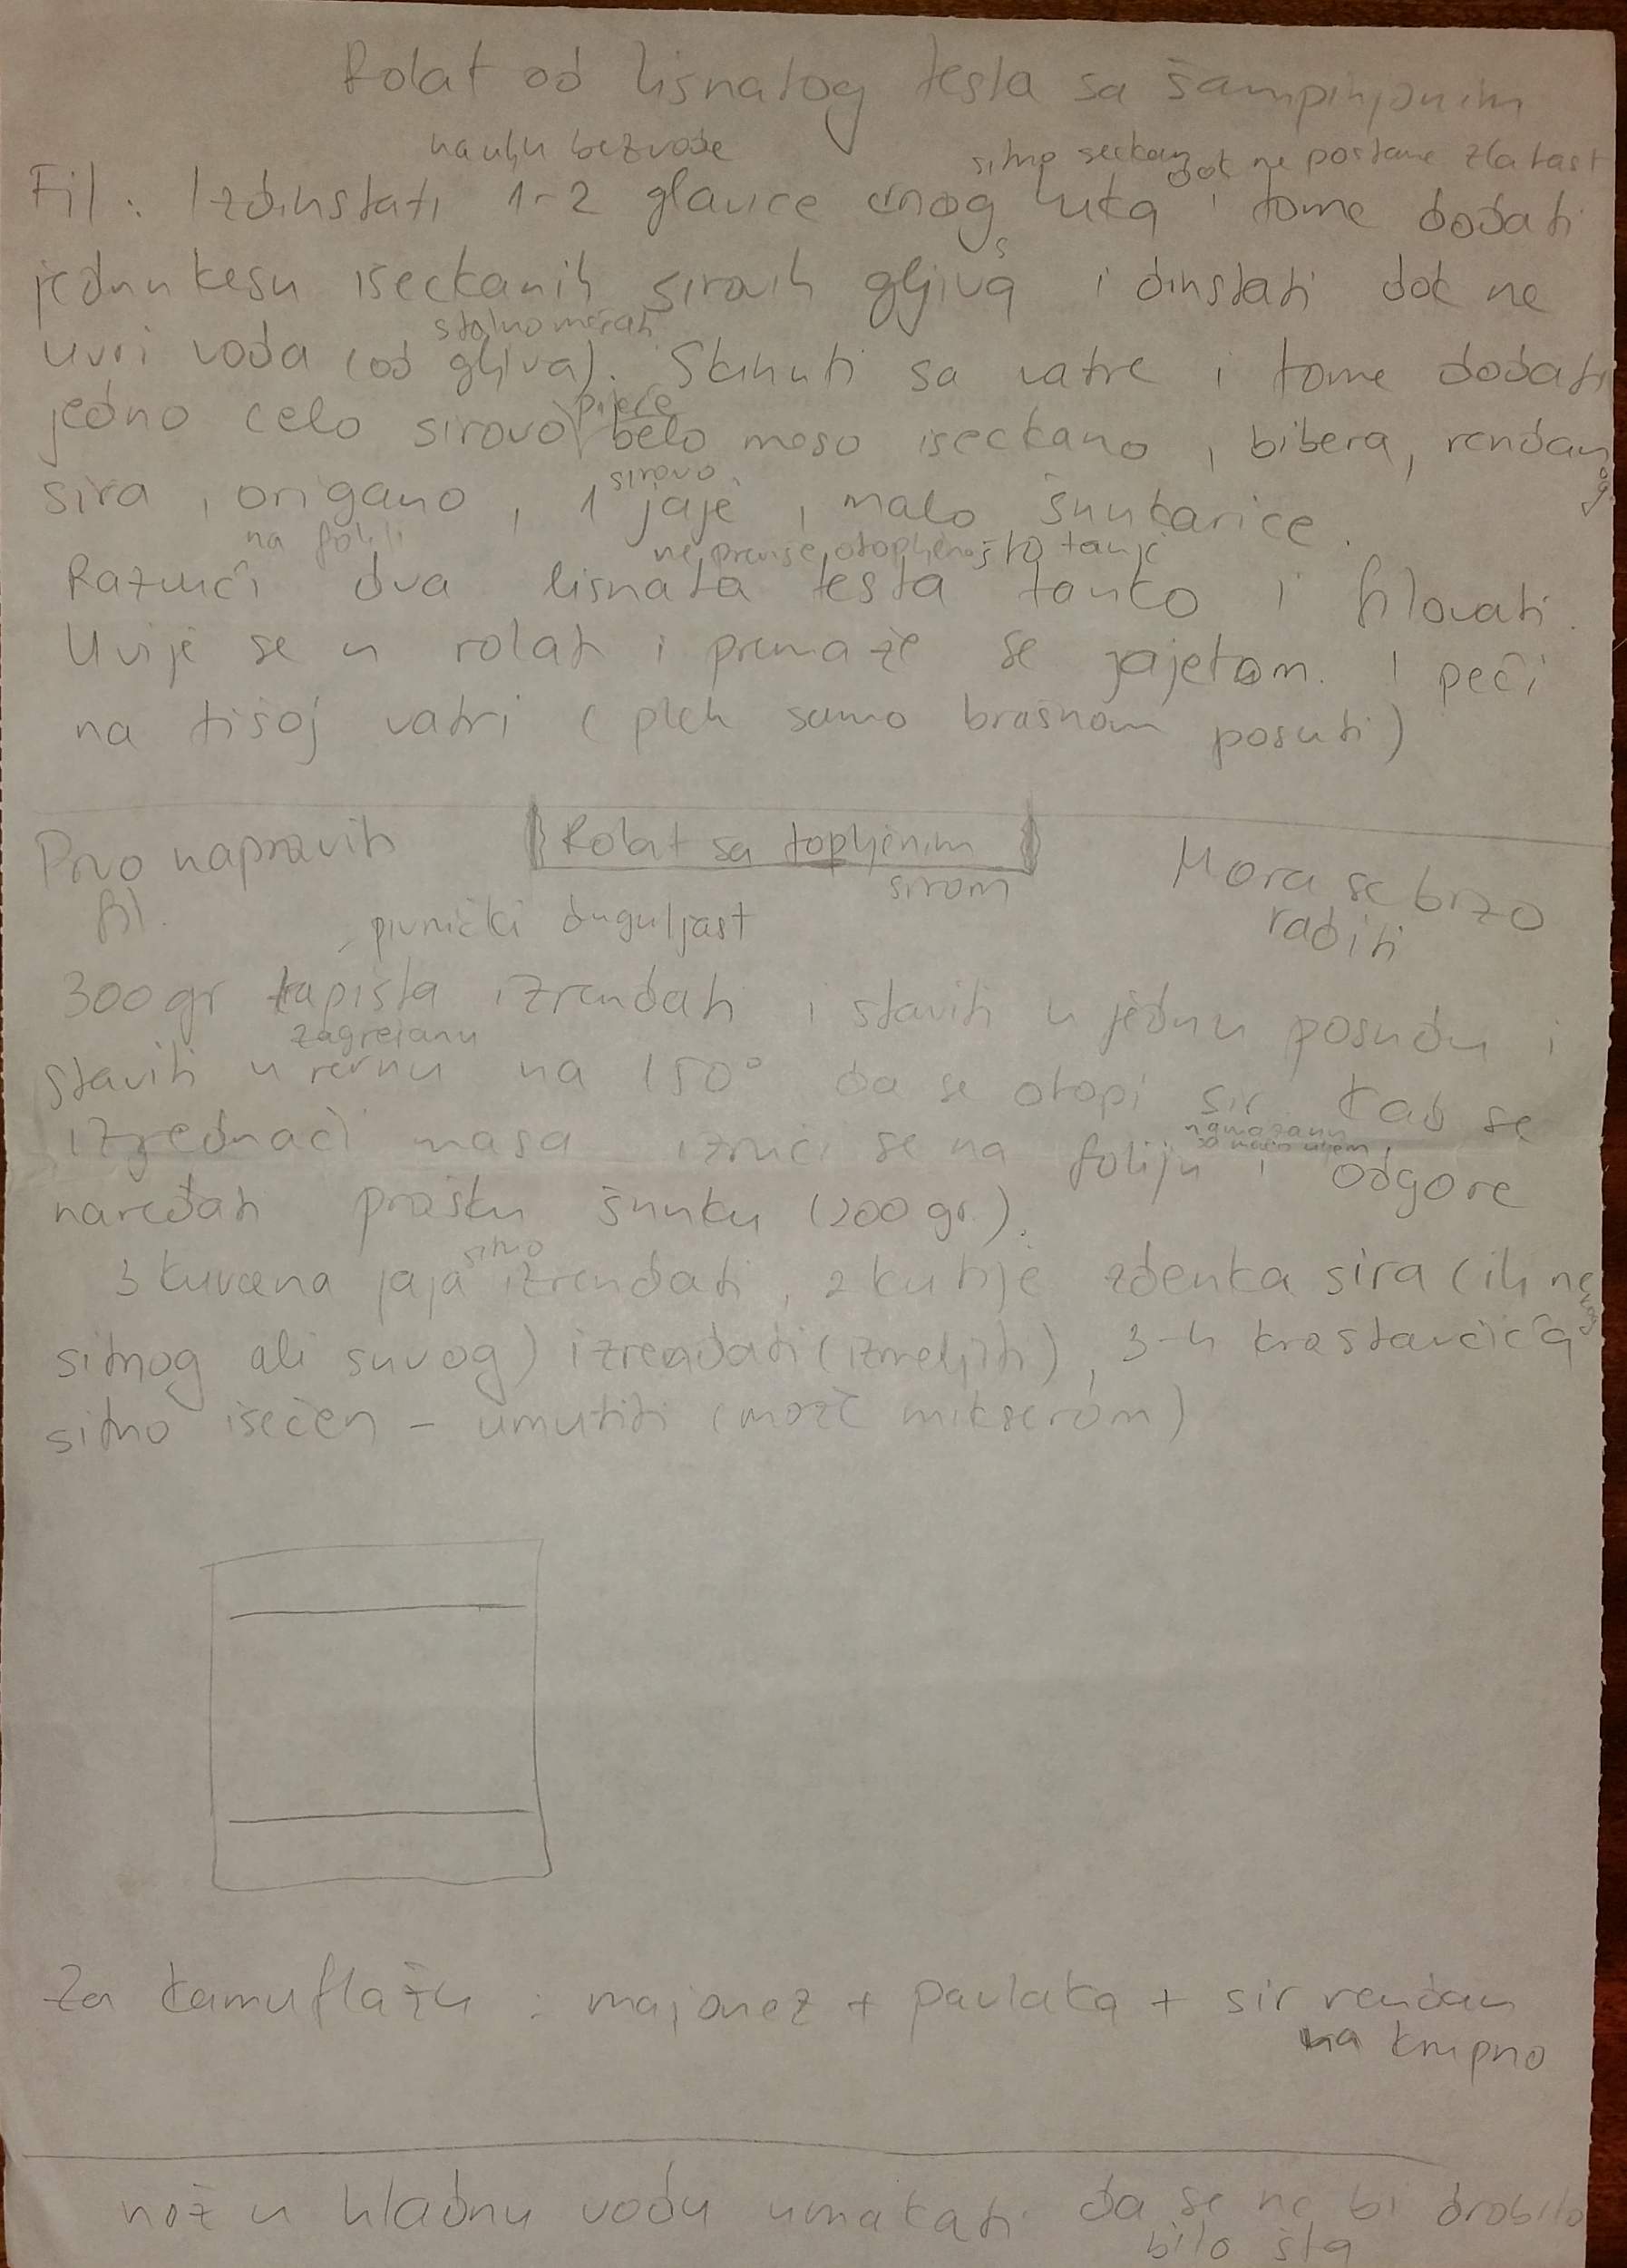 Rolat od lisnatog testa sa šampinjonim
na ulju bez vode
sitno seckan dok ne postane zlatast
Fil: Izdinstati 1-2 glavice crnog luka i tome dodati
jednu kesu iseckanih sirovih gljiva i dinstati dok ne
stalno mešati
uvri voda (od gljiva). Skinuti sa vatre i tome dodati
pileće
jedno celo sirovo belo meso iseckano, bibera, rendanog
sirovo
sira, origano, 1 jaje, malo šunkarice.
na foliji
ne previše otopljeno što tanje
Razvući dva lisnata testa tanko i filovati.
Uvije se u rolat i premaže se jajetom. I peći
na tišoj vatri (pleh samo brašnom posuti)
Prvo napraviti
fil.
Rolat sa topljenim
sirom
Mora se brzo
raditi
pivnički duguljast
300 gr trapista izrendati i staviti u jednu posudu i
zagrejanu
staviti u rernu na 150° da se otopi sir. Kad se
namazanu
izjednači masa izruči se na foliju i odgore
naređati prašku šunku (200 gr.).
sitno
3 kuvana jaja izrendati, 2 kutije zdenka sira (ili
sitnog ali suvog) izrendati (izmeljiti), 3-4 krastavčića
sitno isečen - umutiti (može mikserom)
Za kamuflažu: majonez + pavlaka + sir rendan
na krupno
nož u hladnu vodu umakati da se ne bi drobilo
bilo šta